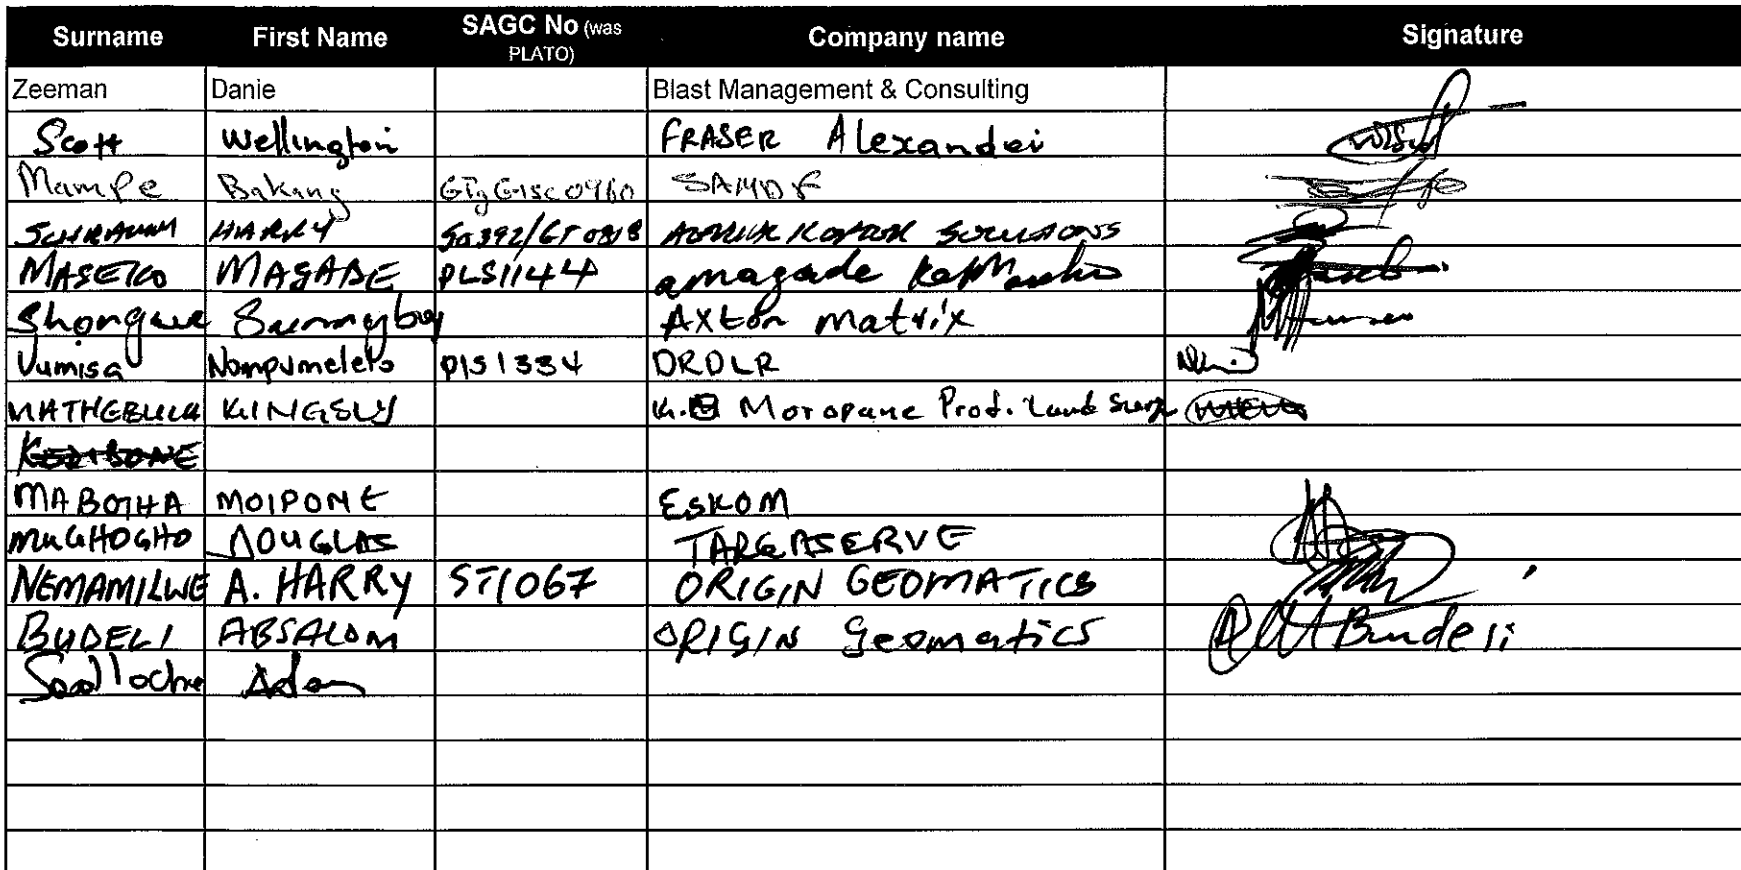 Surname First Name SAGC No (was PLATO) Company name Signature
Zeeman Danie Blast Management & Consulting
Scott Wellington FRASER Alexander
Mampe Bakang SANDF
HARRY
MASEKO MAGADE PLS1144 amagade
Shongwe Sunnyboy Axton matrix
Vumisa Nompumelelo PLS1334 DRDLR
KINGSLY Moropane Prof. Land
MABOTHA MOIPONE ESKOM
MUGHOGHO DOUGLAS
NEMAMILWE A. HARRY ST1067 ORIGIN GEOMATICS
BUDELI ABSALOM ORIGIN Geomatics Budeli
Adam